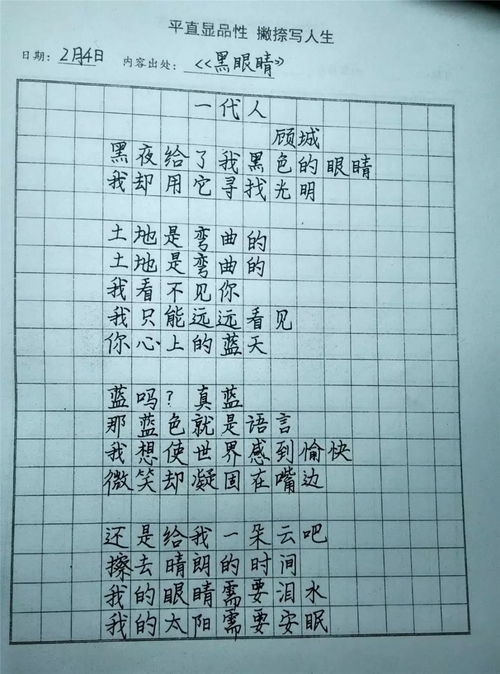 平直显品性 撇捺写人生
日期：2月4日 内容出处：《黑眼睛》
一代人
顾城
黑夜给了我黑色的眼睛
我却用它寻找光明
土地是弯曲的
土地是弯曲的
我看不见你
我只能远远看见
你心上的蓝天
蓝吗？真蓝
那蓝色就是语言
我想使世界感到愉快
微笑却凝固在嘴边
还是给我一朵云吧
擦去晴朗的时间
我的眼睛需要泪水
我的太阳需要安眠